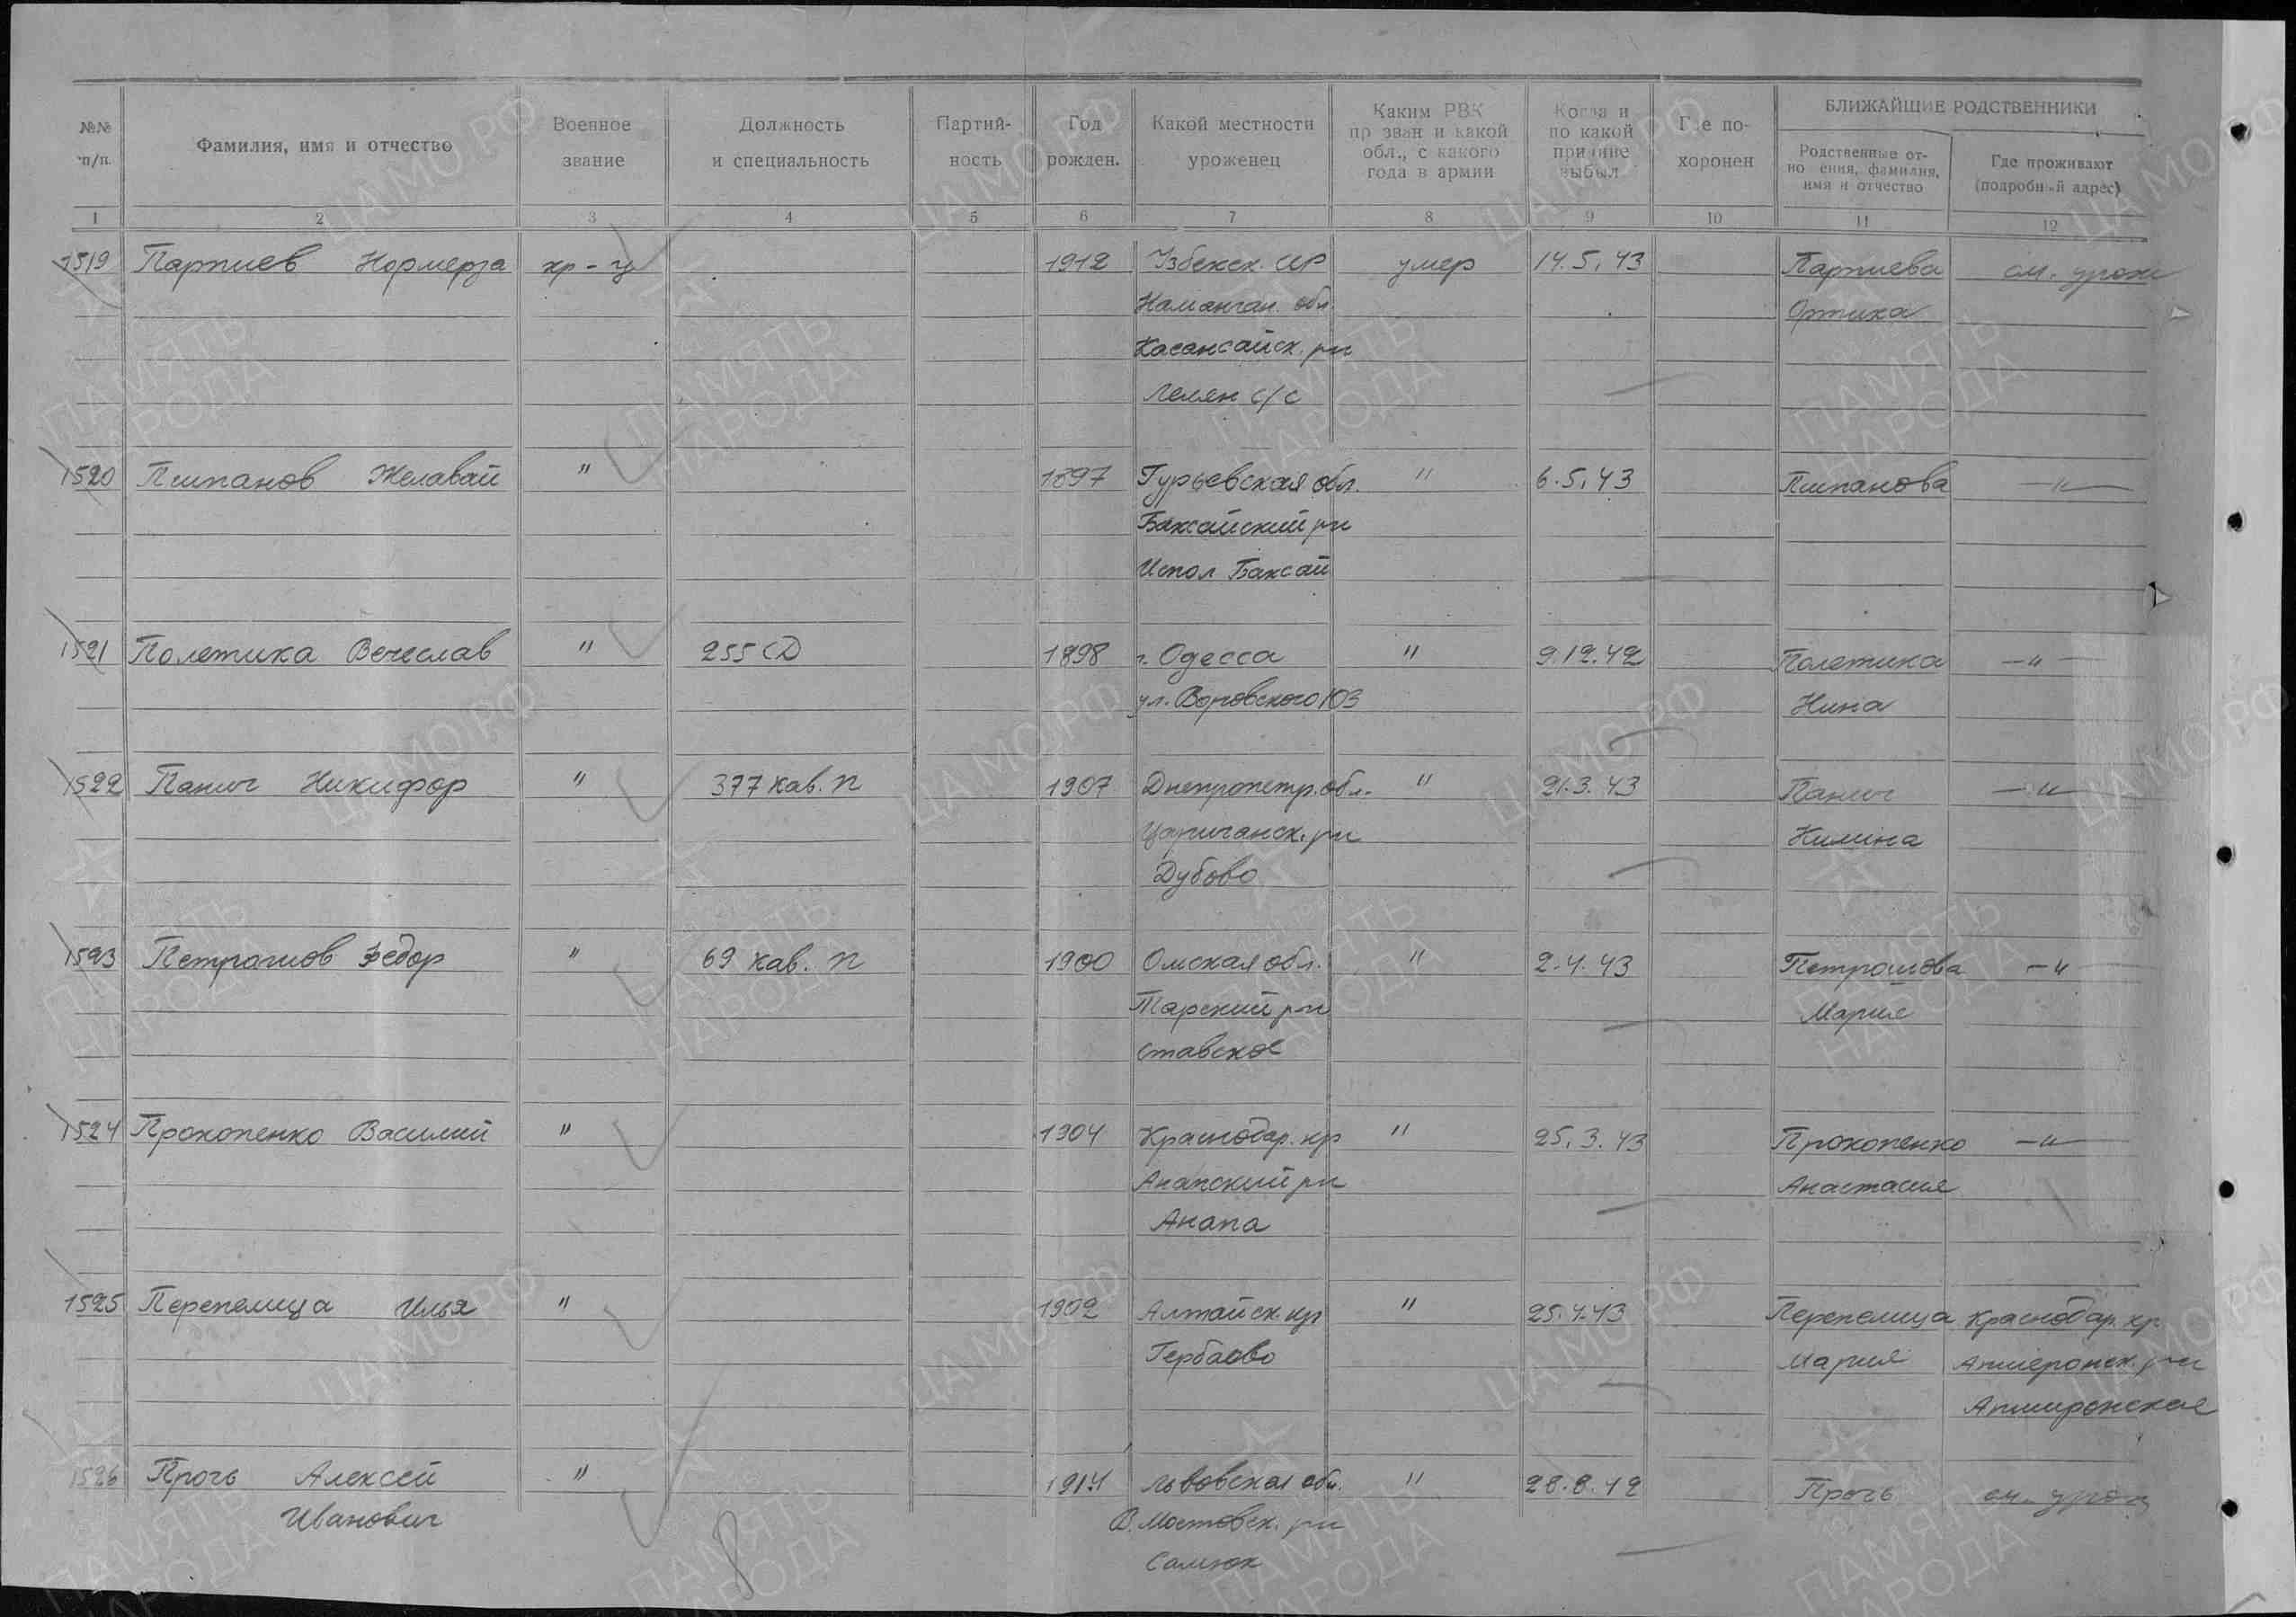 №№ п/п.
Фамилия, имя и отчество
Военное звание
Должность и специальность
Партий- ность
Год рожден.
Какой местности уроженец
Каким РВК пр зван и какой обл., с какого года в армии
Когда и по какой причине выбыл
Где по- хоронен
БЛИЖАЙШИЕ РОДСТВЕННИКИ
Родственные от- но ения, фамилия, имя и отчество
Где проживают (подробный адрес)
1 2 3 4 5 6 7 8 9 10 11 12
1519 Парпиев Нормерза кр-ц 1912 Узбекск. ССР умер 14.5.43 Парпиева см. урож
Наманган. обл. Ортика
Касансайск. рн
с/с
1520 Пшпанов Желавай " 1897 Гурьевская обл. " 6.5.43 Пшпанова —"—
Баксайский рн
Испол Баксай
1521 Полетика Вечеслав " 255 СД 1898 г. Одесса " 9.12.42 Полетика —"—
ул. Воровского 103 Нина
1522 Панич Никифор " 377 кав. п 1907 Днепропетр. обл. " 21.3.43 Панич —"—
Царичанск. рн Килина
Дубово
1523 Петрашов Федор " 69 кав. п 1900 Омская обл. " 2.4.43 Петрашова —"—
Тарский р-н Мария
Ставское
1524 Прокопенко Василий " 1904 Краснодар. кр " 25.3.43 Прокопенко —"—
Анапский рн Анастасия
Анапа
1525 Перепелица Илья " 1902 Алтайск. кр " 25.4.43 Перепелица Краснодар. кр
Гербаово Мария Апшеронск. р-н
Апширонская
1526 Прочь Алексей " 1914 Львовская обл. " 28.8.42 Прочь см. урож
Иванович В. Мостовск. рн
Салюк
ЦАМО.РФ
ПАМЯТЬ НАРОДА